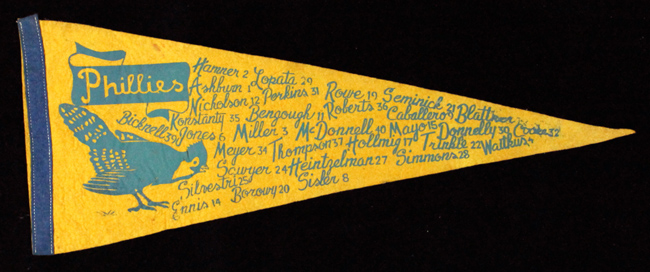 Phillies
Hamner 2 Lopata 29
Ashburn 1 Perkins 31 Rowe 19 Seminick 21
Nicholson 12 Bengough 11 Roberts 36 Caballero 9 Blattner
Bicknell 39 Konstanty 35 Miller 3 McDonnell 40 Mayo 15 Donnelly 30
Jones 6 Thompson 37 Hollmig 17 Trinkle 22 Waitkus
Meyer 34 Heintzelman 27 Simmons 28
Sawyer 24 Sisler 8
Silvestri 25 Borowy 20
Ennis 14